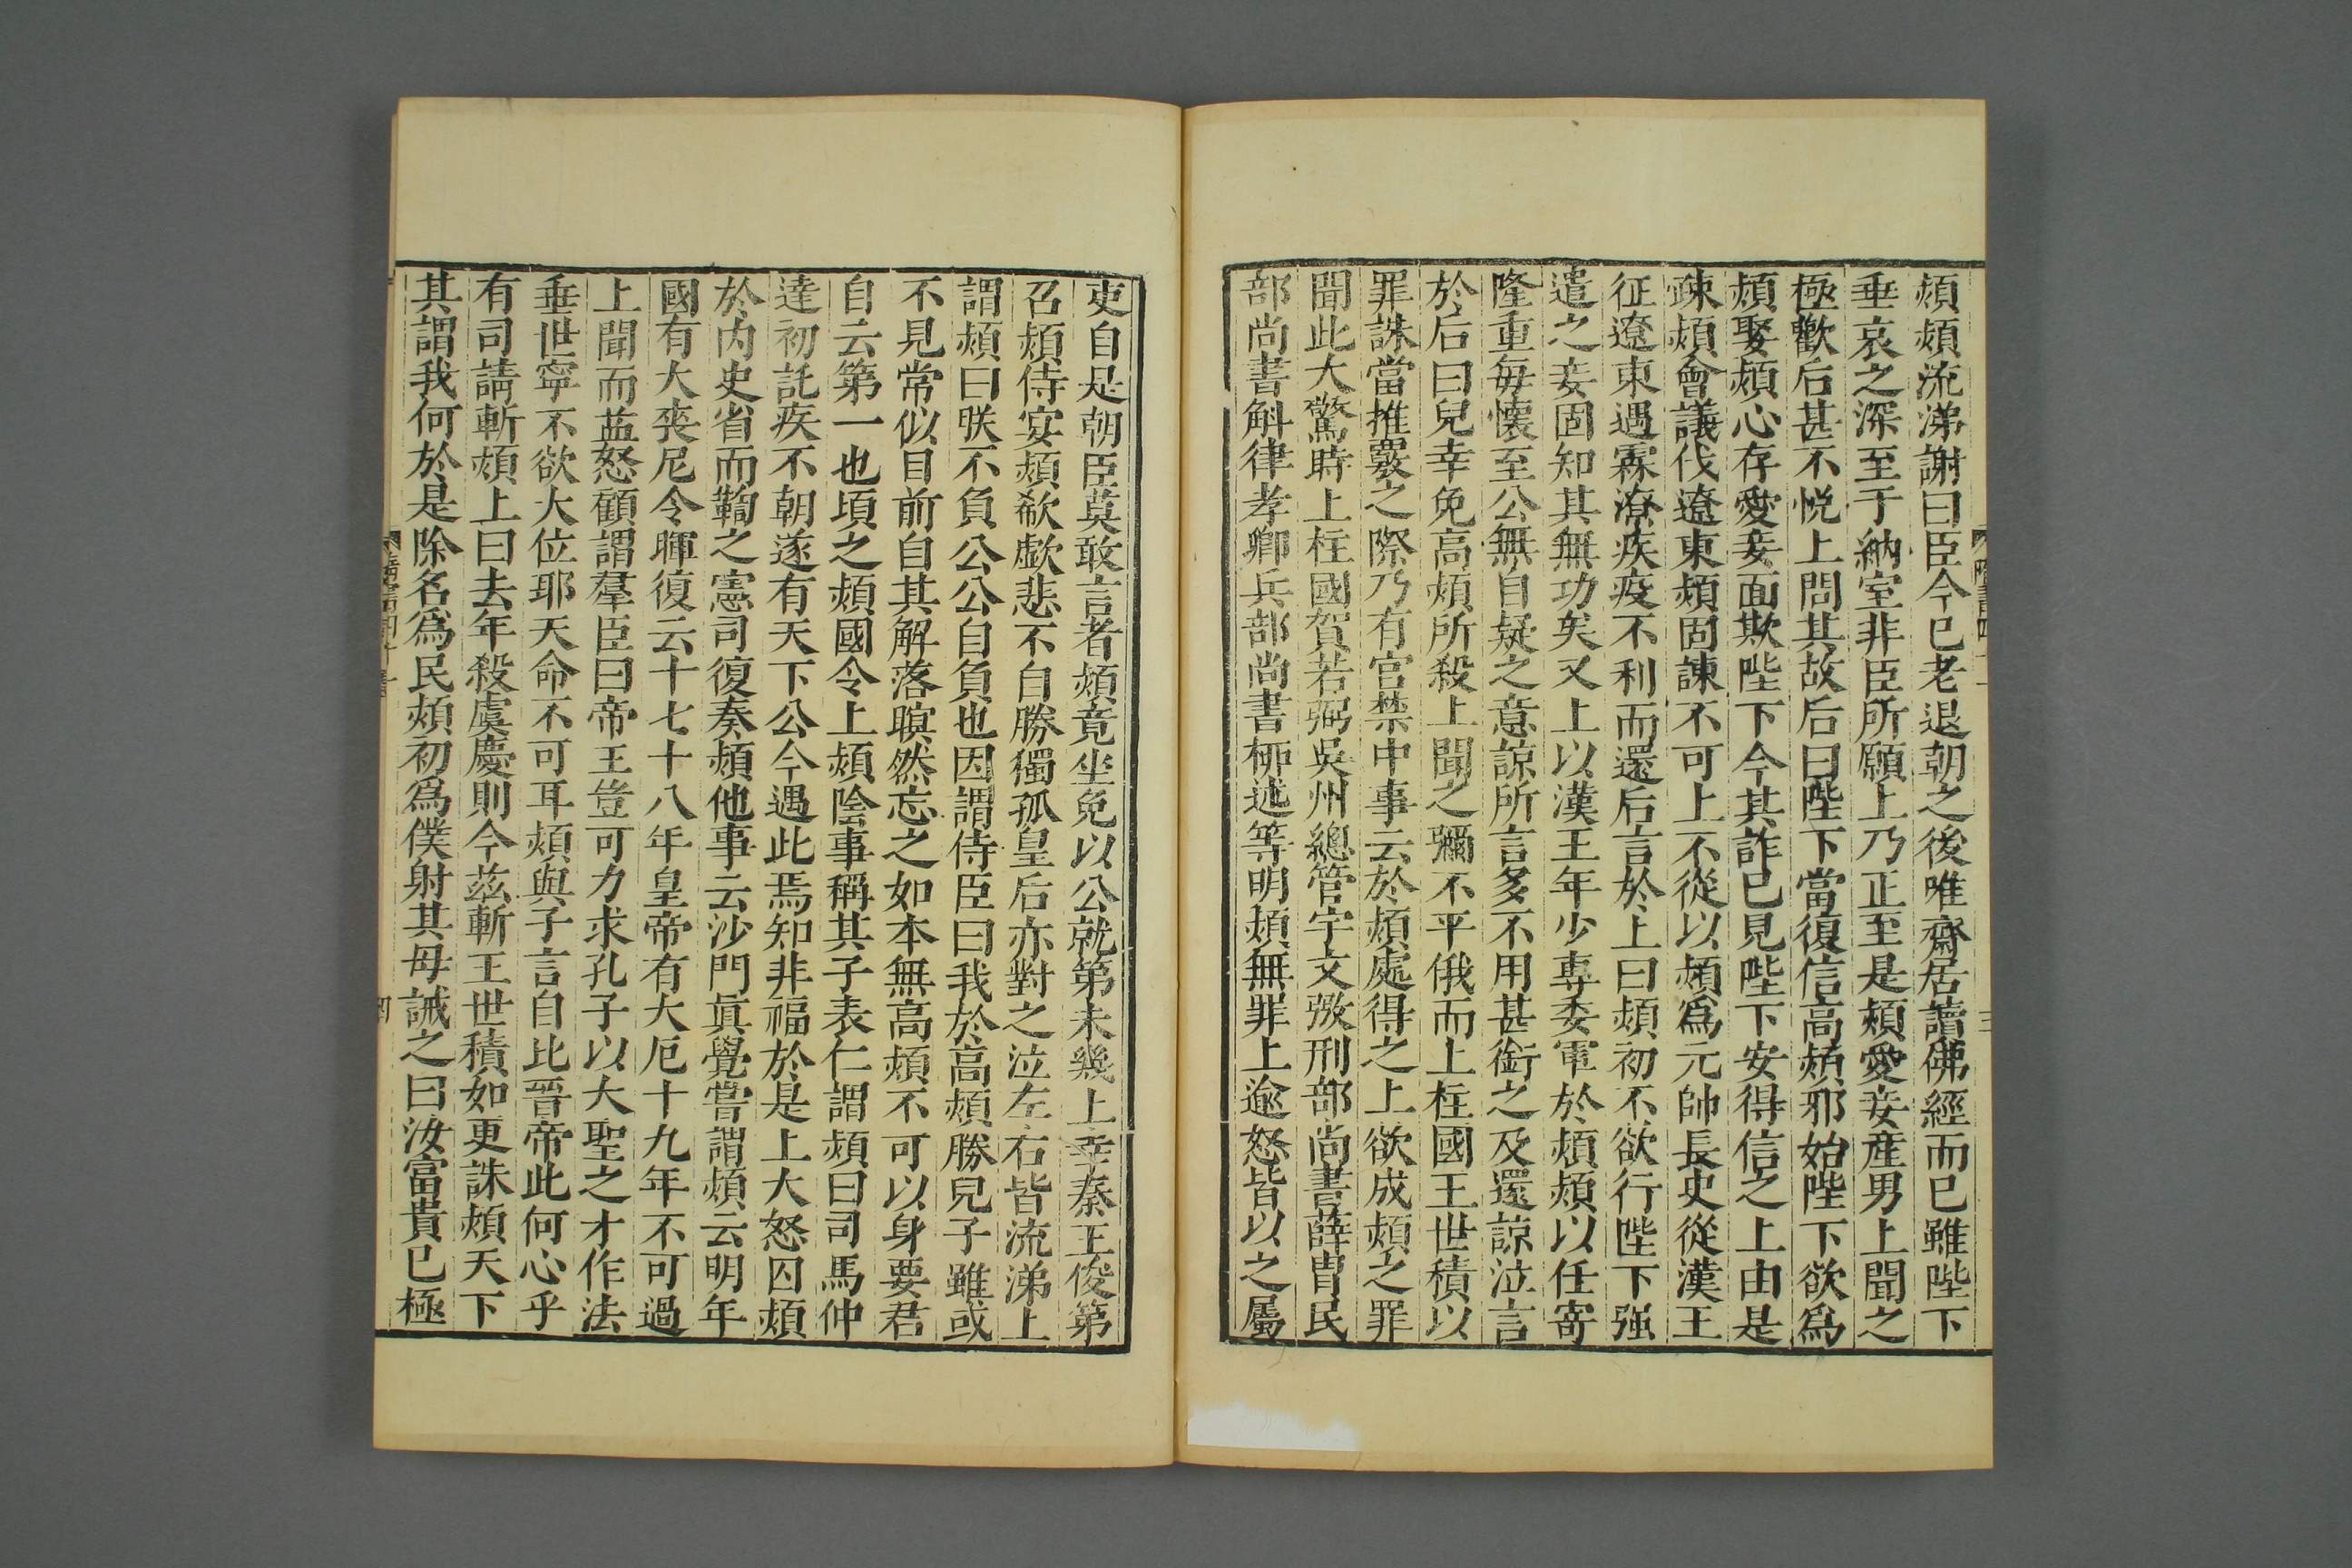 熲熲流涕謝曰臣今已老退朝之後唯齋居讀佛經而已雖陛下
垂哀之深至于納室非臣所願上乃正至是熲愛妾產男上聞之
極歡后甚不悅上問其故后曰陛下當復信高熲邪始陛下欲爲
熲娶熲心存愛妾面欺陛下今其詐已見陛下安得信之上由是
疎熲會議伐遼東熲固諫不可上不從以熲爲元帥長史從漢王
征遼東遇霖潦疾疫不利而還后言於上曰熲初不欲行陛下强
遣之妾固知其無功矣又上以漢王年少專委軍於熲熲以任寄
隆重每懷至公無自疑之意諒所言多不用甚銜之及還諒泣言
於后曰兒幸免高熲所殺上聞之彌不平俄而上柱國王世積以
罪誅當推覈之際乃有宫禁中事云於熲處得之上欲成熲之罪
聞此大驚時上柱國賀若弼吳州總管宇文㢸刑部尚書薛胄民
部尚書斛律孝卿兵部尚書柳述等明熲無罪上逾怒皆以之屬
吏自是朝臣莫敢言者熲竟坐免以公就第未幾上幸秦王俊第
召熲侍宴熲欷歔悲不自勝獨孤皇后亦對之泣左右皆流涕上
謂熲曰朕不負公公自負也因謂侍臣曰我於高熲勝兒子雖或
不見常似目前自其解落瞑然忘之如本無高熲不可以身要君
自云第一也頃之熲國令上熲陰事稱其子表仁謂熲曰司馬仲
達初託疾不朝遂有天下公今遇此焉知非福於是上大怒囚熲
於內史省而鞫之憲司復奏熲他事云沙門眞覺嘗謂熲云明年
國有大喪尼令暉復云十七十八年皇帝有大厄十九年不可過
上聞而益怒顧謂羣臣曰帝王豈可力求孔子以大聖之才作法
垂世寧不欲大位耶天命不可耳熲與子言自比晉帝此何心乎
有司請斬熲上曰去年殺虞慶則今茲斬王世積如更誅熲天下
其謂我何於是除名爲民熲初爲僕射其母誡之曰汝富貴已極
四